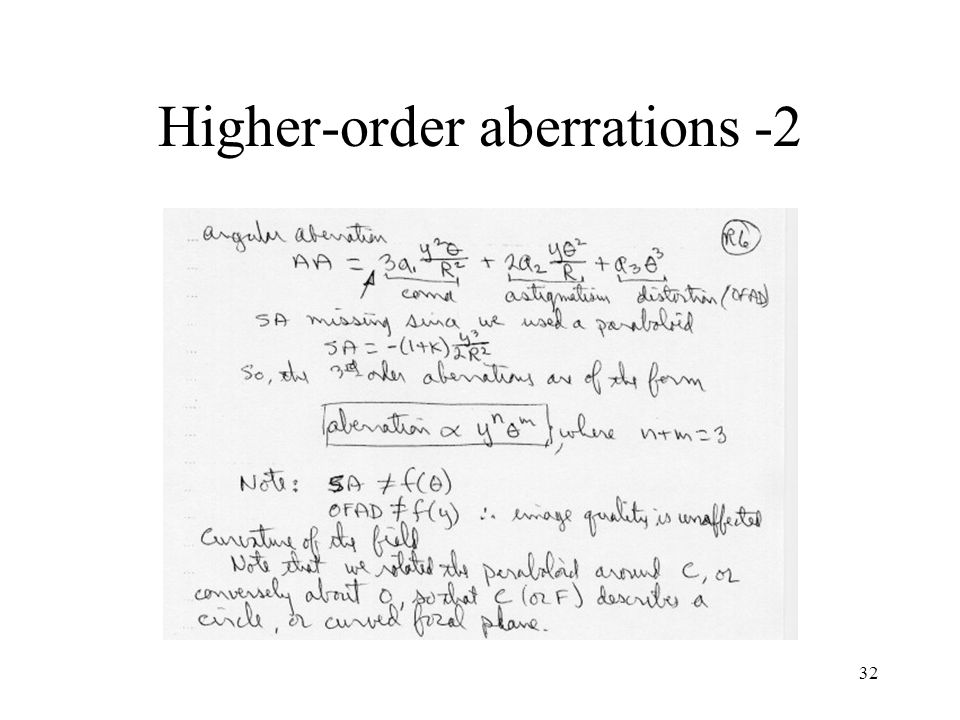 Higher-order aberrations -2
angular aberration R6
AA = 3a₁ y²θ/R² + 2a₂ yθ²/R + a₃θ³
coma astigmatism distortion (OFAD)
SA missing since we used a paraboloid
SA = -(1+K) y³/2R²
So, the 3rd order aberrations are of the form
aberration ∝ yⁿθᵐ }, where n+m=3
Note: SA ≠ f(θ)
OFAD ≠ f(y) ∴ image quality is unaffected
Curvature of the field
Note that we rotated the paraboloid around C, or
conversely about O, so that C (or F) describes a
circle, or curved focal plane.
32